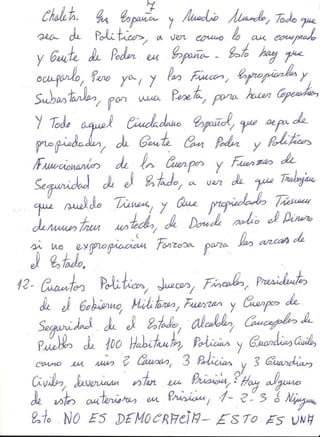 7
Chalets. En España y Medio Mundo, Todo que
sea de Politicos, a ver como lo an comprado
y Gente de Poder en España - Esto hay que
ocuparlo, Pero ya, y las Fincas, Expropiarlas y
Subastarlas, por una Peseta, para hacer Coperativas
Y Todo aquel Ciudadano Español, que sepa de
propiedades, de Gente Con Poder y Politicos
Funcionarios de los Cuerpos y Fuerzas de
Seguridad de el Estado, a ver de que Trabajan
que sueldo Tienen, y Que propiedades Tienen
demuestren ustedes, de Donde salio el Dinero
si no expropiacian Forzosa para las arcas de
el Estado.
12- Cuantos Politicos, Jueces, Fiscales, Presidentes
de el Gobierno, Militares, Fuerzas y Cuerpos de
Seguridad de el Estado, Alcaldes, Concejales de
Pueblos de 100 Habitantes, Policias y Guardias Civiles
como en mis 2 Causas, 3 Policias y 3 Guardias
Civiles, deverian estar en Prision, ? Hay alguno
de estos anteriores en Prision, 1-2-3 ó Ninguno
Esto NO ES DEMOCRACIA - ESTO ES UNA